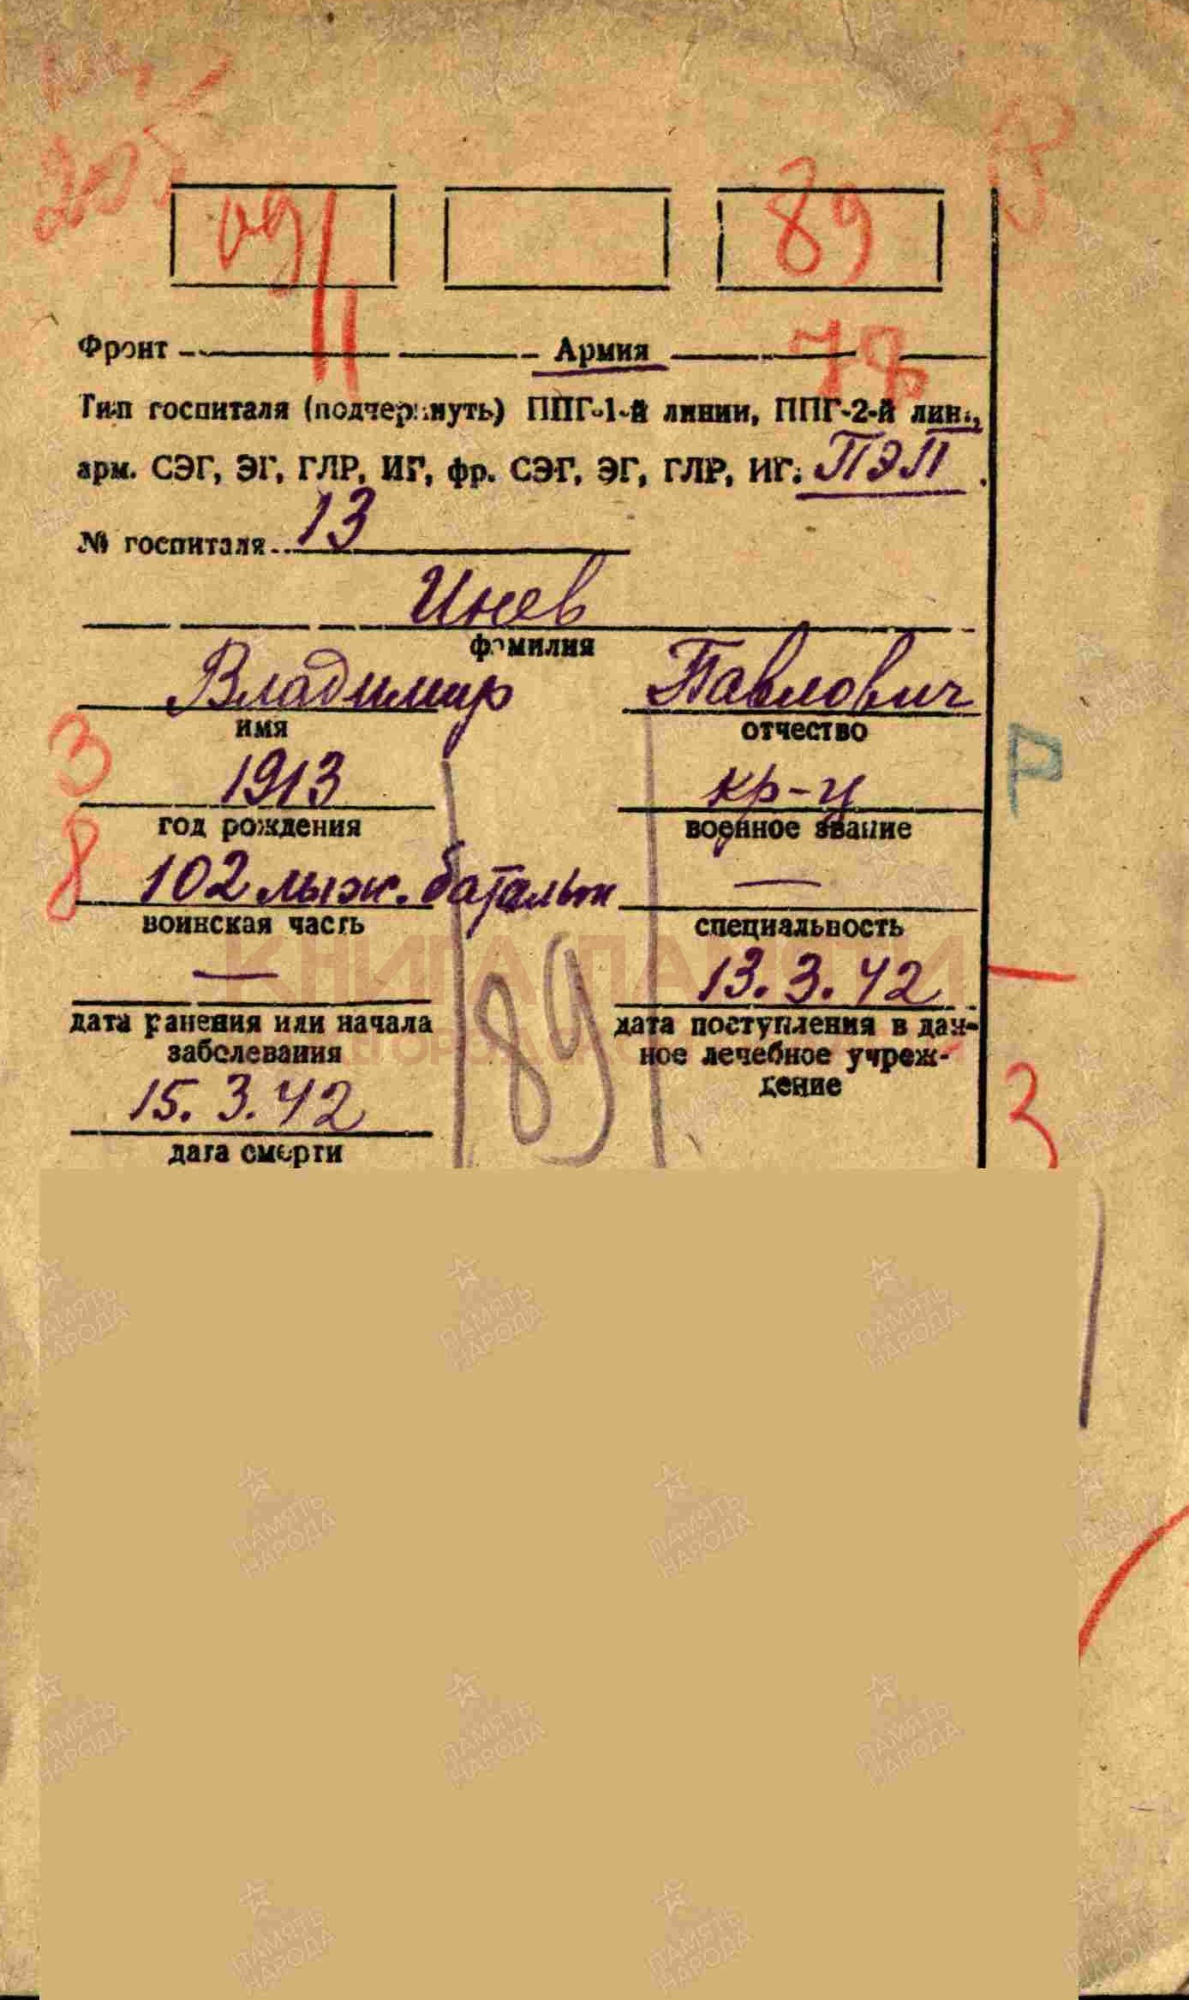 89
78
Фронт Армия
Тип госпиталя (подчеркнуть) ППГ-1-й линии, ППГ-2-й лин.,
арм. СЭГ, ЭГ, ГЛР, ИГ, фр. СЭГ, ЭГ, ГЛР, ИГ: ПЭП.
№ госпиталя 13
Инев
фамилия
Владимир Павлович
имя отчество
3
1913 кр-ц
год рождения военное звание
8
102 лыж. батальон —
воинская часть специальность
КНИГА ПАМЯТИ
— 13.3.42
дата ранения или начала заболевания
дата поступления в дан-
ное лечебное учреж-
дение
89
15.3.42
дата смерти
3
ПАМЯТЬ НАРОДА